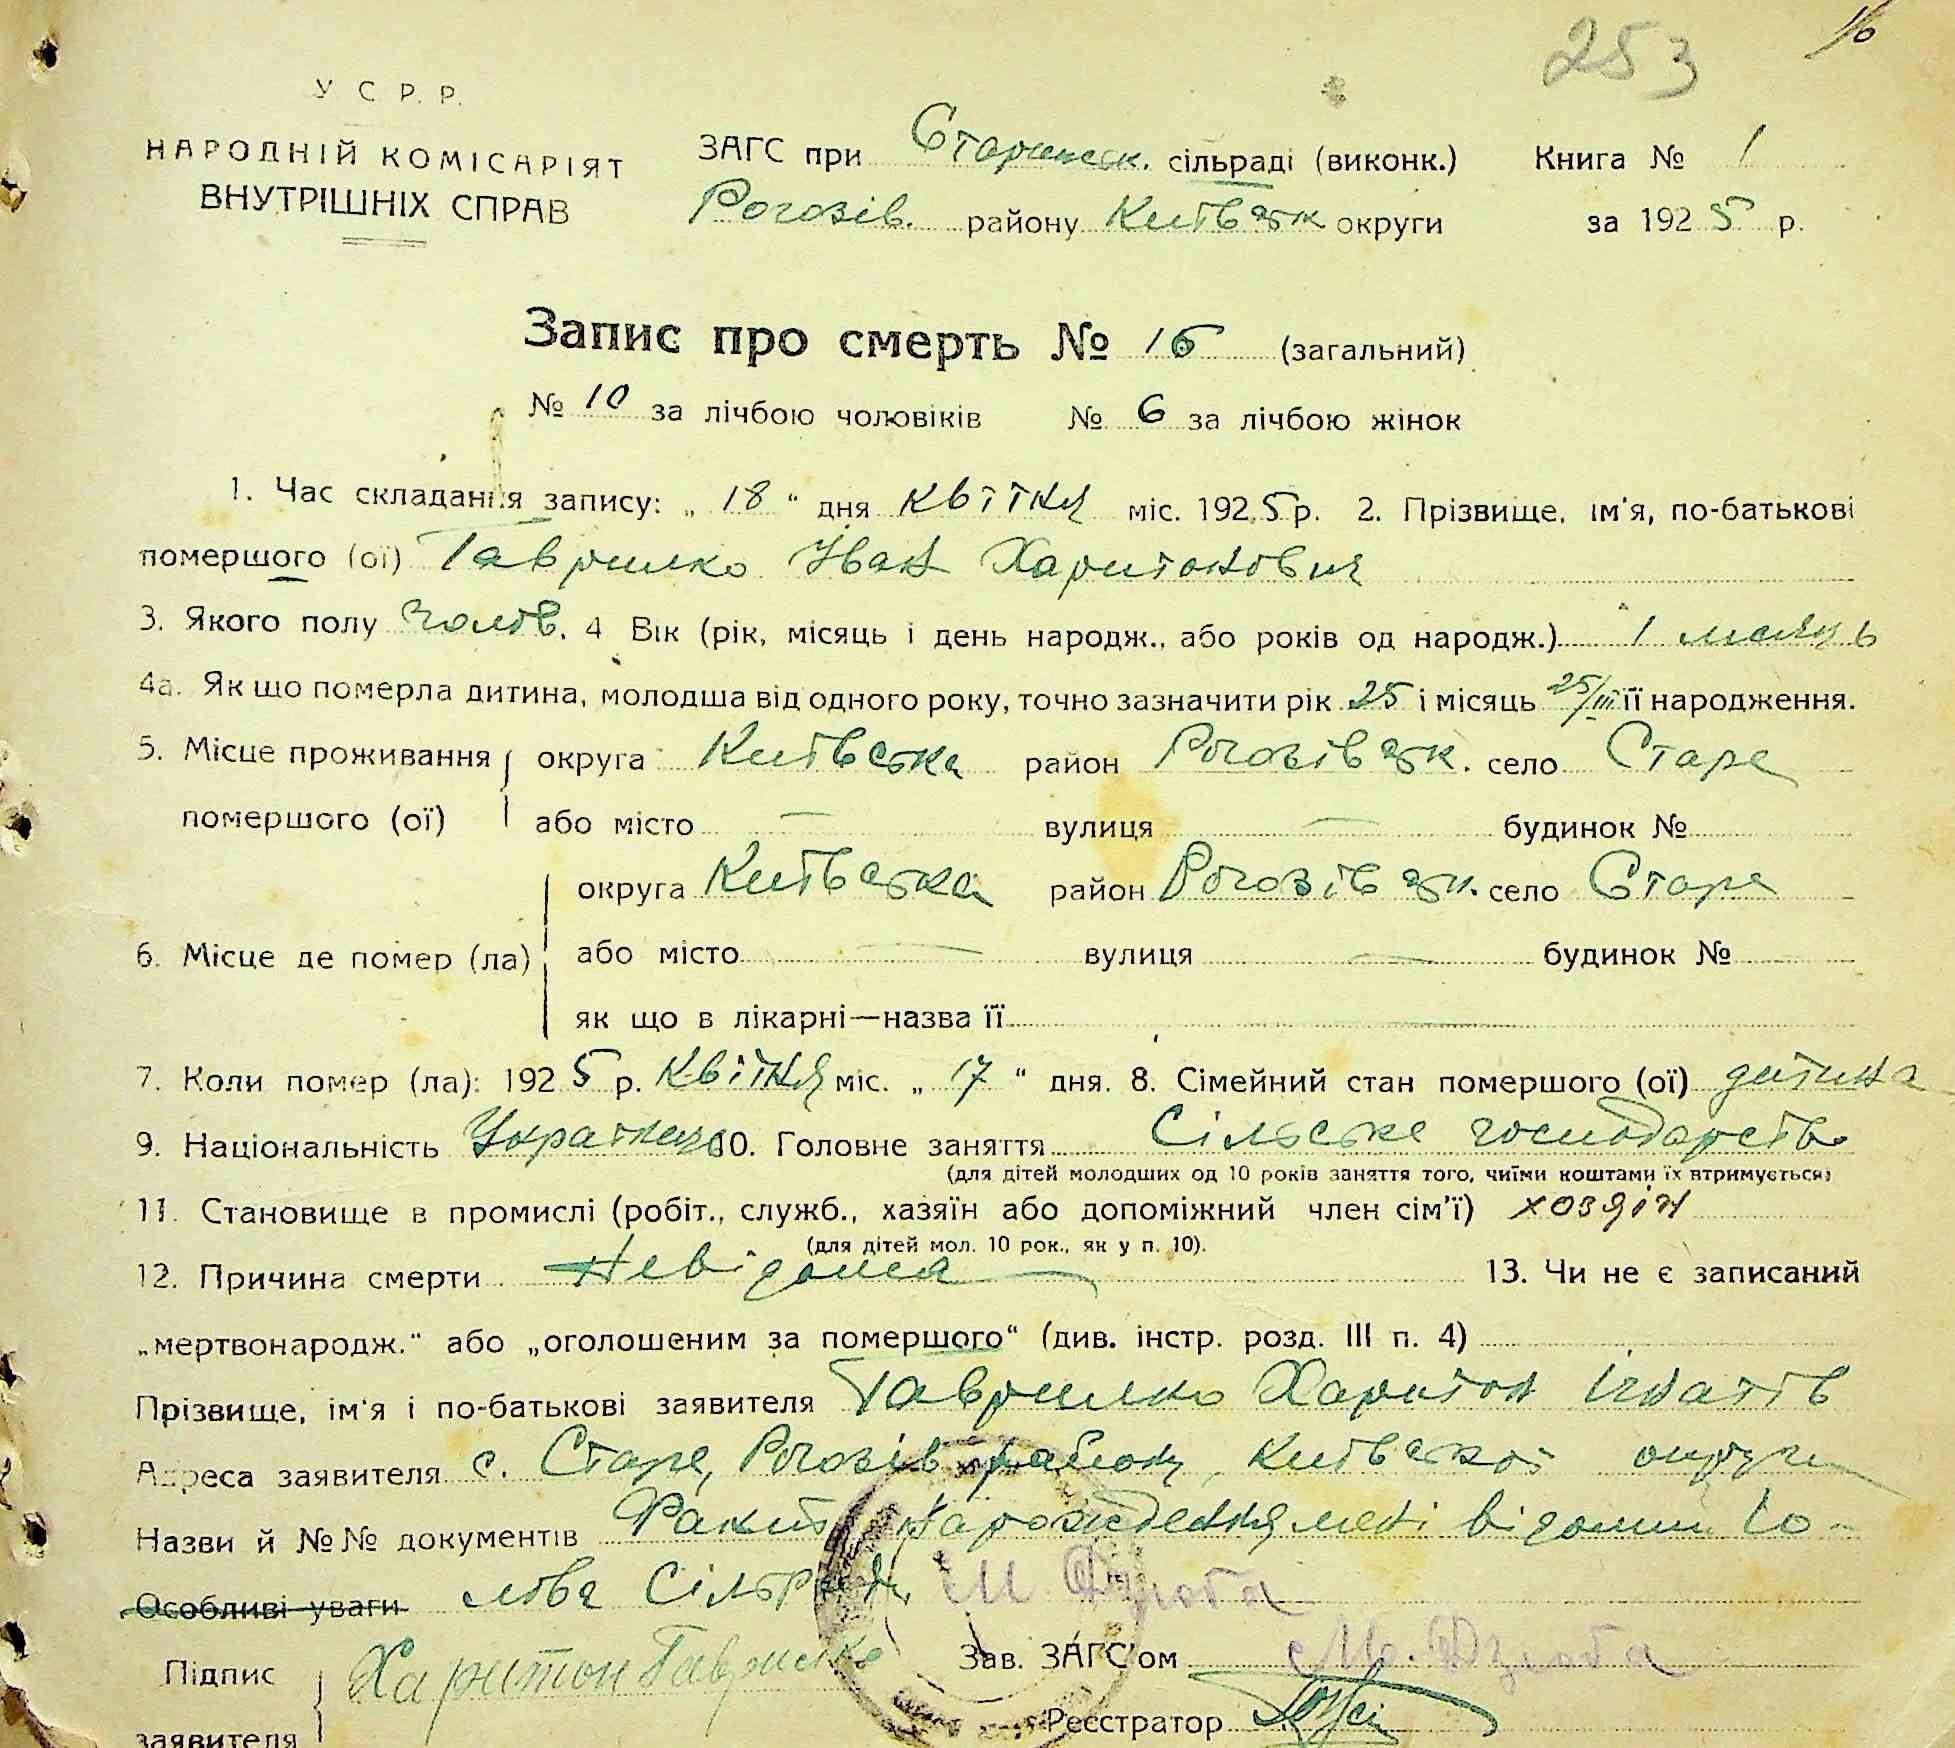 253
16
У С Р. Р.
НАРОДНІЙ КОМІСАРІЯТ
ВНУТРІШНІХ СПРАВ
ЗАГС при Старинськ. сільраді (виконк.) Книга № 1
Рогозів. району Київськ округи за 1925 р.
Запис про смерть № 16 (загальний)
№ 10 за лічбою чоловіків № 6 за лічбою жінок
1. Час складання запису: „ 18 “ дня квітня міс. 1925 р. 2. Прізвище, ім'я, по-батькові
помершого (ої) Гаврилко Іван Харитонович
3. Якого полу чолов. 4 Вік (рік, місяць і день народж., або років од народж.) 1 місяць
4а. Як що померла дитина, молодша від одного року, точно зазначити рік 25 і місяць 25/III її народження.
5. Місце проживання округа Київська район Рогозівськ. село Старе
помершого (ої) або місто — вулиця — будинок №
округа Київська район Рогозівськ. село Старе
6. Місце де помер (ла) або місто — вулиця — будинок №
як що в лікарні—назва її —
7. Коли помер (ла): 1925 р. квітня міс. „ 17 “ дня. 8. Сімейний стан помершого (ої) дитина
9. Національність Українець 10. Головне заняття Сільське господарство
(для дітей молодших од 10 років заняття того, чиїми коштами їх втримується)
11. Становище в промислі (робіт., служб., хазяїн або допоміжний член сім'ї) хозяін
(для дітей мол. 10 рок., як у п. 10).
12. Причина смерти Невідома 13. Чи не є записаний
„мертвонародж.“ або „оголошеним за помершого“ (див. інстр. розд. III п. 4)
Прізвище, ім'я і по-батькові заявителя Гаврилко Харитон Ігнатів
Адреса заявителя с. Старе, Рогозів району, Київської округи
Назви й №№ документів Факт народження мені відомий Го-
Особливі уваги лова Сільради М Дзюба
Підпис Харитон Гаврилко Зав. ЗАГС'ом М. Дзюба
заявителя Реєстратор